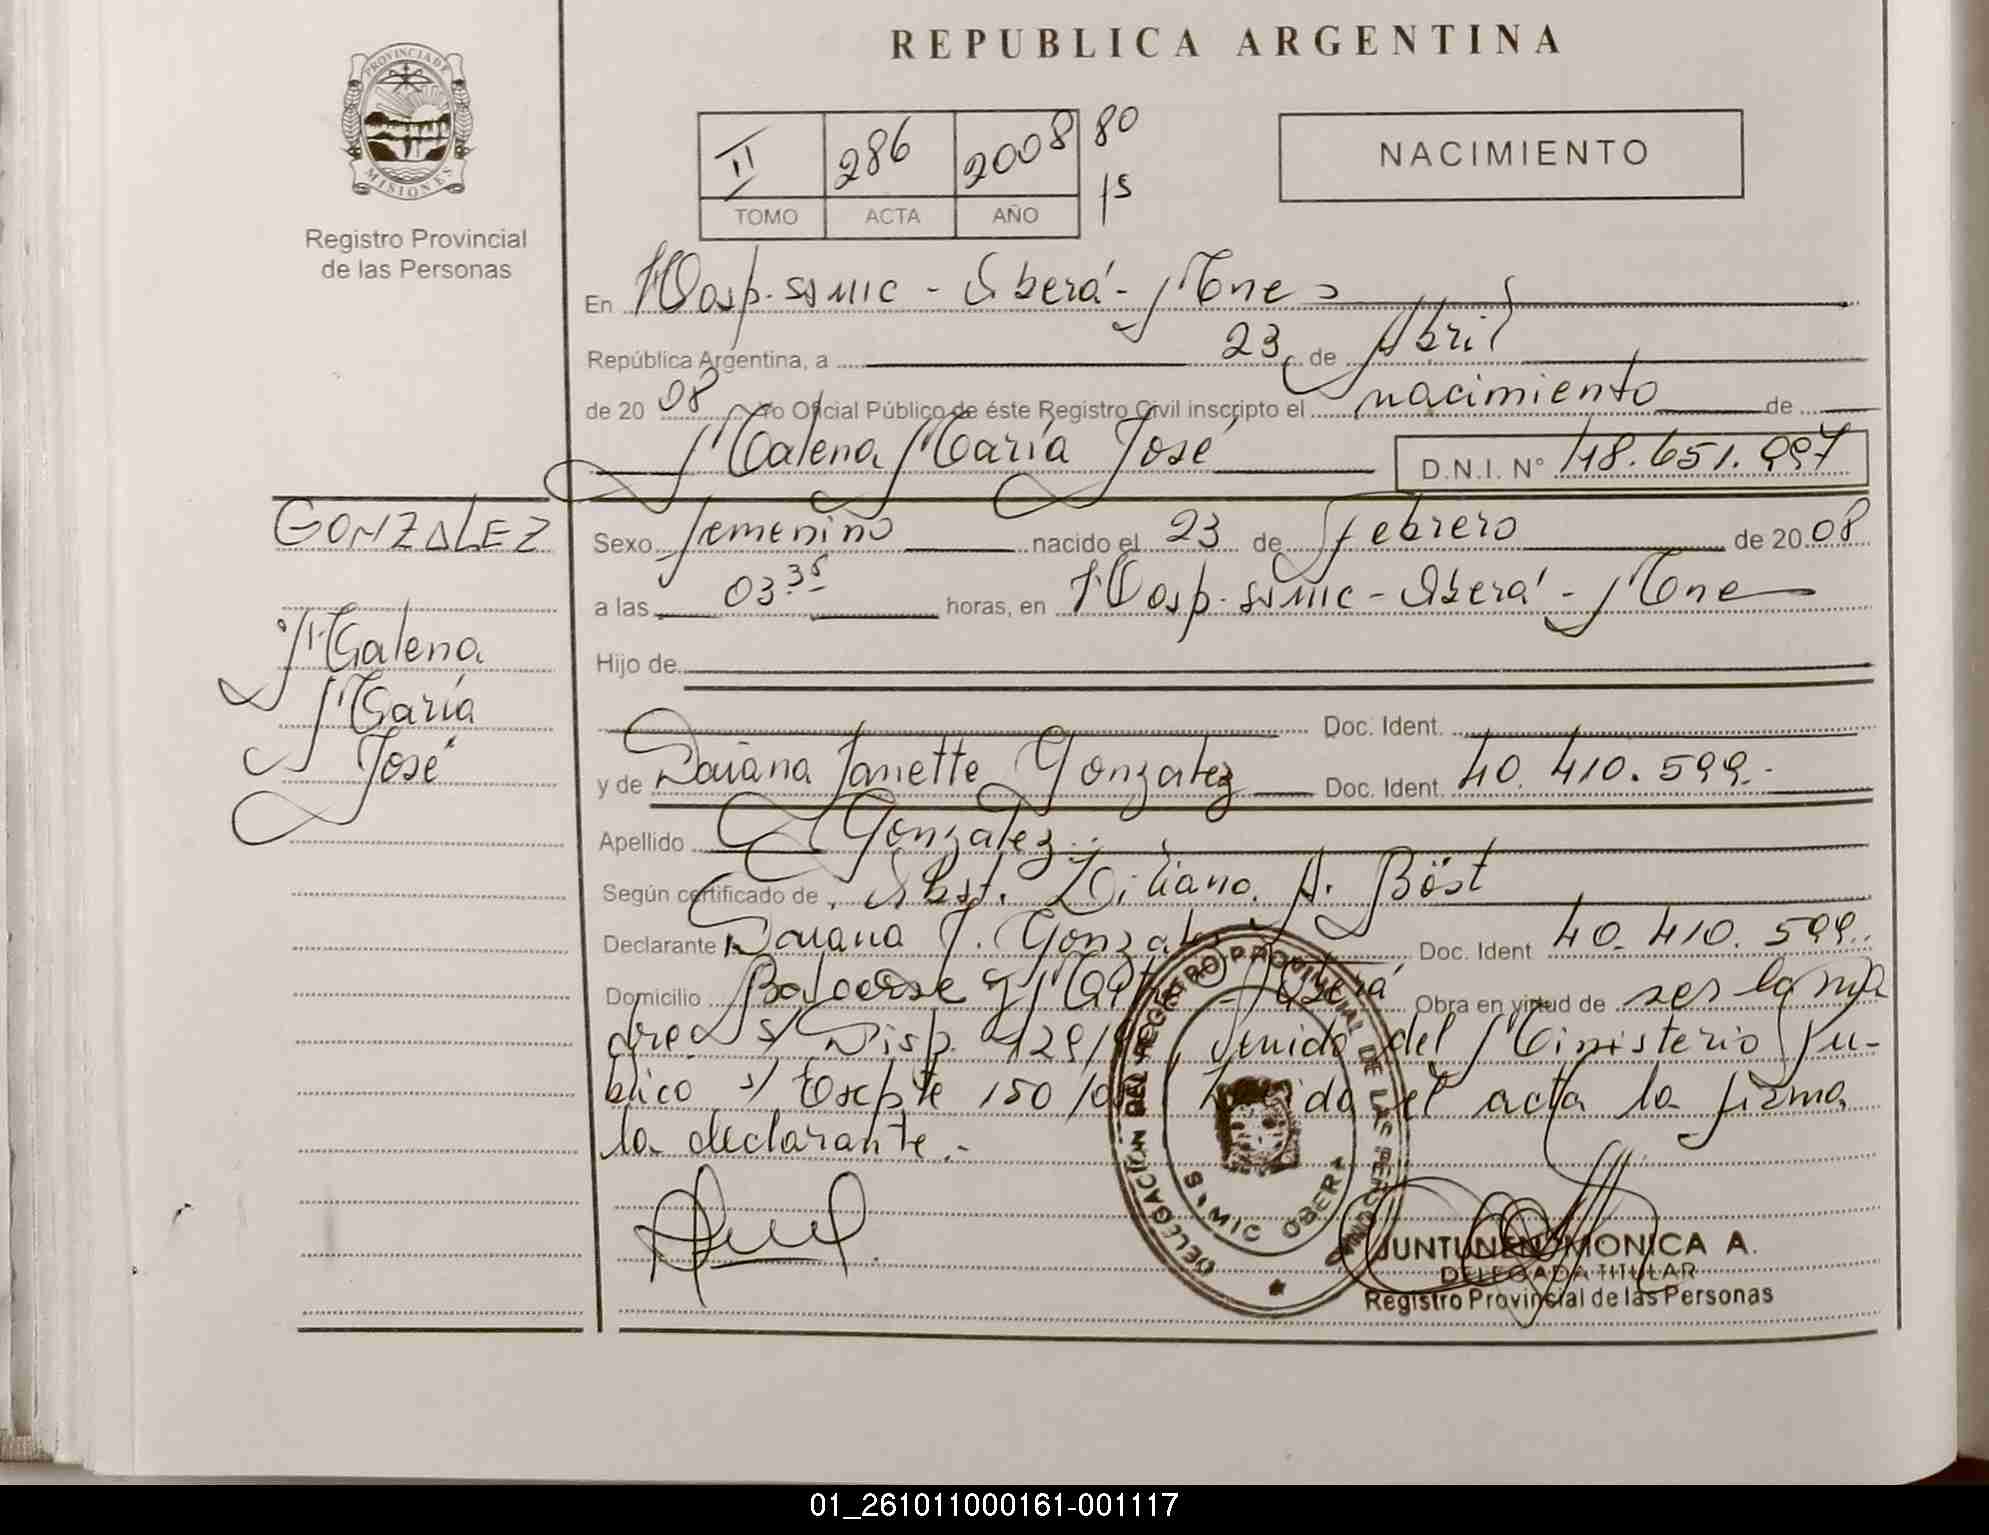 REPUBLICA ARGENTINA
PROVINCIA DE
MISIONES
Registro Provincial
de las Personas
II 286 2008 80
15
TOMO ACTA AÑO
NACIMIENTO
En Hosp. SAMIC - Oberá - Mnes
República Argentina, a 23 de Abril
de 20 08 Yo Oficial Público de éste Registro Civil inscripto el nacimiento de
Malena María José D.N.I. Nº 48.651.997
GONZALEZ
Malena
María
José
Sexo femenino nacido el 23 de febrero de 20 08
a las 03 35 horas, en Hosp. SAMIC - Oberá - Mne
Hijo de
Doc. Ident.
y de Daiana Janette Gonzalez Doc. Ident. 40.410.599.-
Apellido Gonzalez.-
Según certificado de Obst. Liliana A. Böst
Declarante Daiana J. Gonzalez Doc. Ident 40.410.599.
Domicilio Balcarse y Oberá Obra en virtud de ser la ma
dre s/ Disp. del Ministerio Pu-
blico s/ Expte 150 el acta la firma
la declarante.-
DELEGACION DEL REGISTRO PROVINCIAL DE LAS PERSONAS
SAMIC OBERA
JUNTUNEN MONICA A.
DELEGADA TITULAR
Registro Provincial de las Personas
01_261011000161-001117